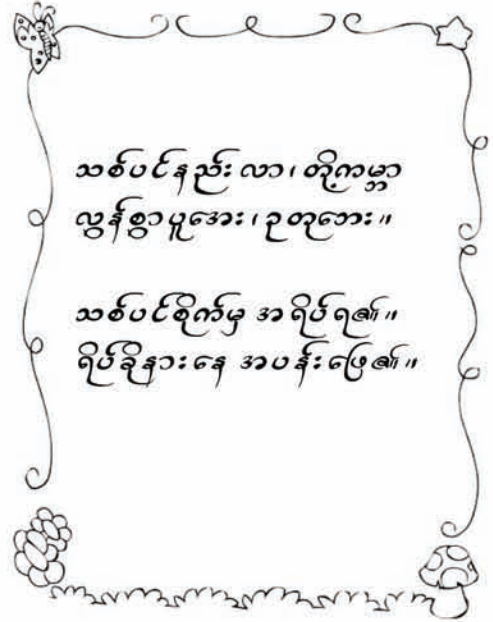 သစ်ပင်နည်းလာ၊ တို့ကမ္ဘာ
လွန်စွာပူအေး၊ ဥတုဘေး။
သစ်ပင်စိုက်မှ အရိပ်ရ၏။
ရိပ်ခိုနားနေ အပန်းဖြေ၏။